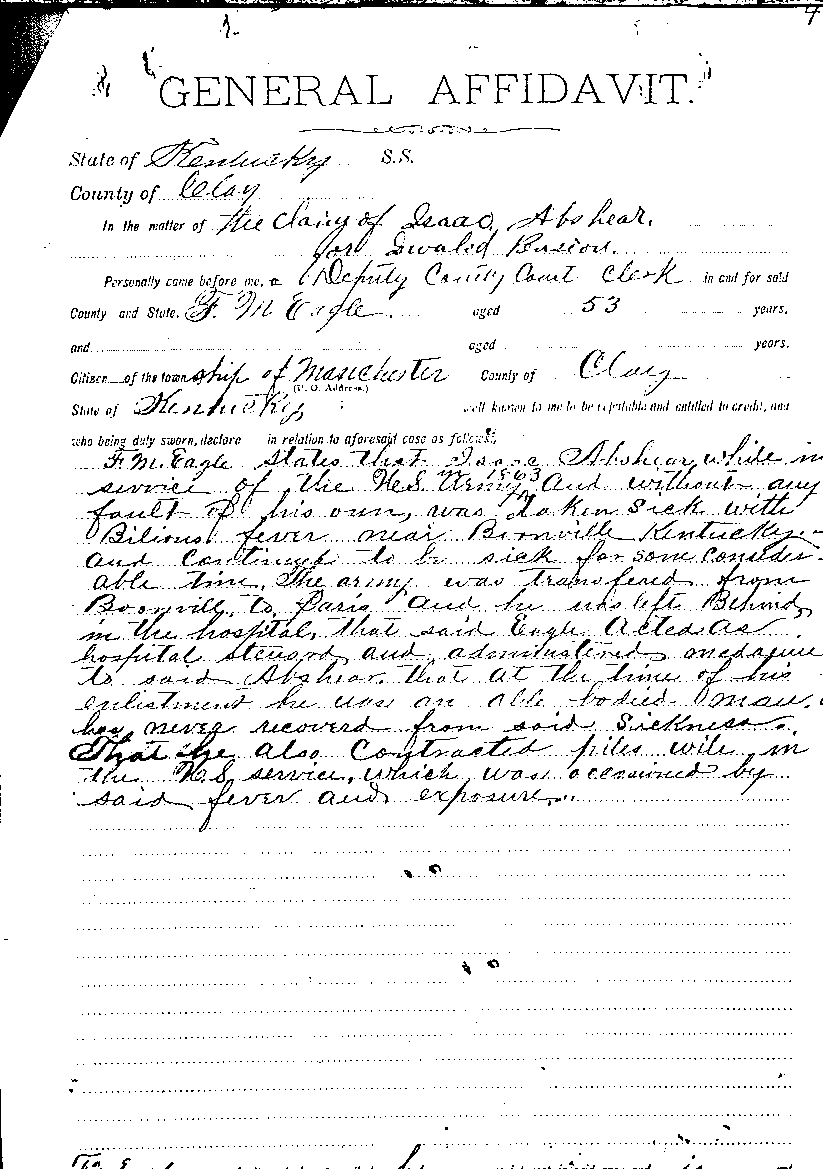 4
GENERAL AFFIDAVIT.
State of Kentucky S.S.
County of Clay
In the matter of the claim of Isaac Abshear.
for Invalid Pension.
Personally came before me, a Deputy County Court Clerk in and for said
County and State. F. M Eagle aged 53 years,
and aged years.
Citizen of the town ship of Manchester County of Clay
(P. O. Address.)
State of Kentucky well known to me to be reputable and entitled to credit, and
who being duly sworn, declare in relation to aforesaid case as follows:
F. M. Eagle states that Isaac Abshear, while in
in 1863
service of the U.S. Army, and without any
fault of his own, was taken sick with
Bilious fever near Boonville Kentucky
and continued to be sick for some consider-
able time. The army was transfered from
Boonvill, to Paris and he was left Behind
in the hospital, that said Eagle Acted as
hospital steward and administered medacine
to said Abshear. that at the time of his
enlistment he was an able bodied man.
has never recoverd from said Sickness.
That he also Contracted piles wile in
the U.S. service, which was occasioned by
said fever and exposure.